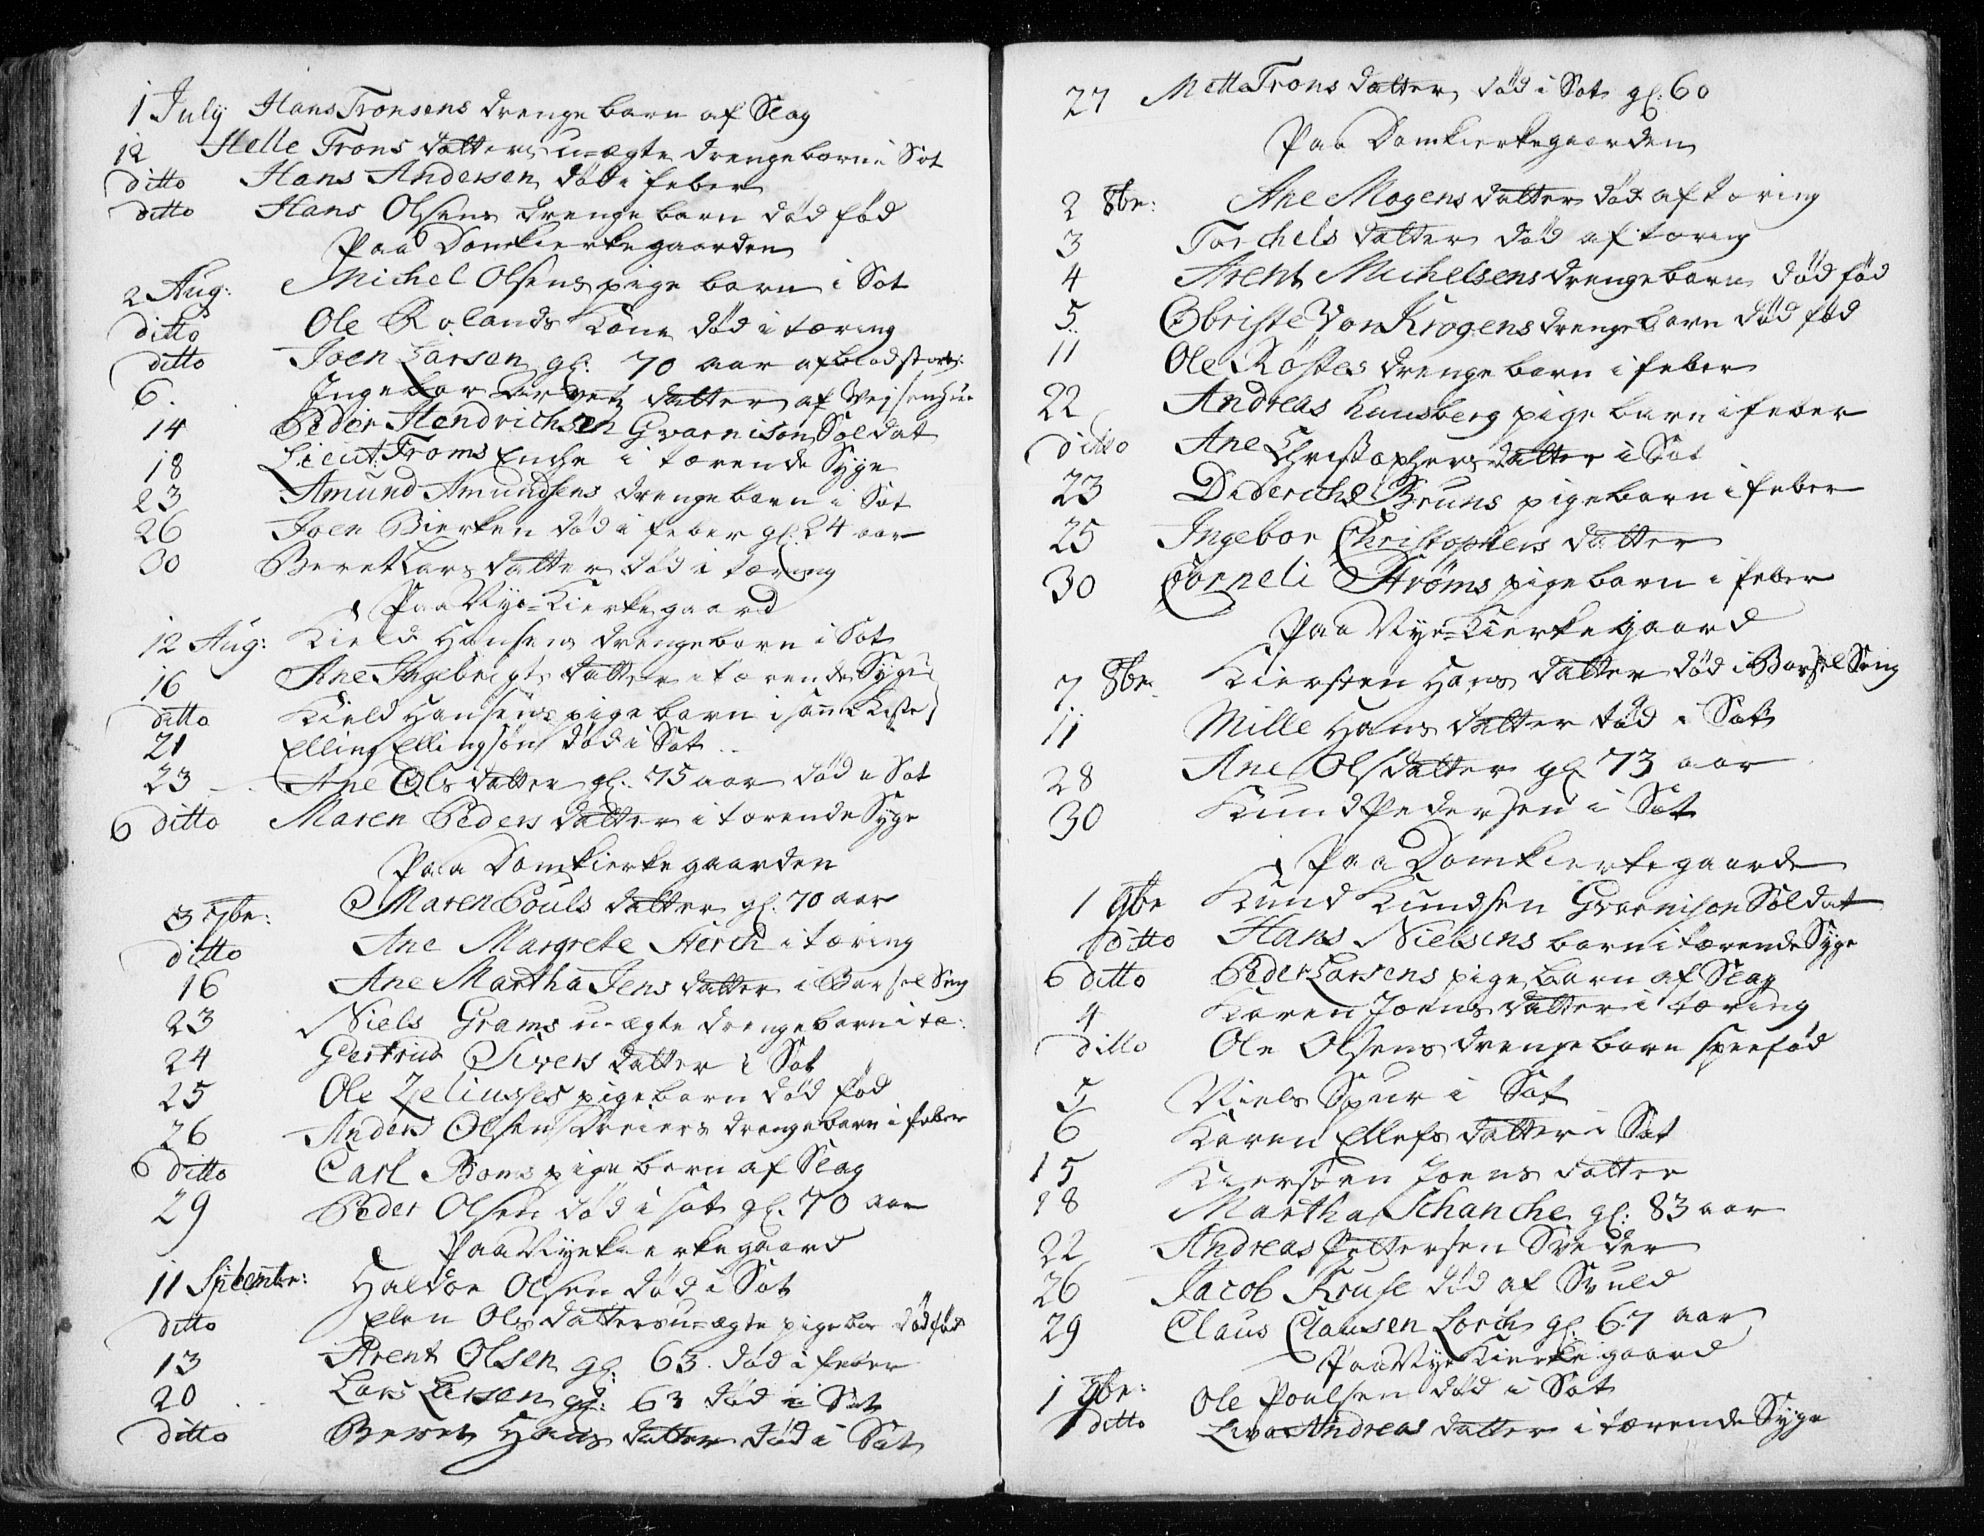 1 July Hans Tronsens drenge barn af Slag
12 Helle Trons datters u-ægte drengebarn i Sot
ditto Hans Andersen død i feber
ditto Hans Olsens drenge barn død fød
Paa Domkierkegaarden
2 Aug: Michel Olsens pige barn i Sot
ditto Ole Rolands Kone død i tæring
ditto Joen Larsen gl: 70 aar af blodstort:
6. Ingebor datter af
14 Peder Hendrichsen Gvarnison Soldat
18 Lieut: Froms Enche i tærende Syge
23 Amund Amundsens drengebarn i Sot
26 Joen Bierken død i feber gl: 24 aar
30 Beret Lars datter død i tæring
Paa Nye-Kierke gaard
12 Aug: Kield Hansens drengebarn i Sot
16 Ane Ingebrigts datter i tærende Syge
ditto Kield Hansens pige barn i samme Kiste
21 Elling Ellingsøn død i Sot
23 Ane Ols datter gl: 75 aar død i Sot
6 ditto Maren Peders datter i tærende Syge
Paa Domkierke gaarden
3 7br: Maren Pouls datter gl: 70 aar
ditto Ane Margrete Sterch i tæring
16 Ane Martha Jens datter i Barsel Sing
23 Niels Grams u-ægte drengebarn i tæ:
24 Gertrud Sivers datter i Sot
25 Ole Zeliusses pigebarn død fød
26 Anders Olsen Dreiers drengebarn i feber
6 ditto Carl Boms pige barn af Slag
29 Peder Olsen død i sot gl: 70 aar
Paa Nye kierkegaard
11 Sptembr: Haldor Olsen død i Sot
ditto Elen Ols datters u-ægte pige bar dødfød
13 Arent Olsen gl: 63. død i feber
20 Lars Larsen gl: 63 død i Sot
ditto Beret Hans datter død i Sot
27 Mette Trons datter død i Sot gl: 60
Paa Domkierkegaarden
2 8br: Ane Mogens datter død af tæring
3 Torchels datter død af tæring
4 Arent Michelsens drengebarn død fød
5. Obriste Von Krogens drengebarn død fød
11 Ole Røstes drenge barn i feber
22 Andreas Kunsberg pige barn i feber
ditto Ane Christophers datter i Sot
23 Diderich Bruns pigebarn i feber
25 Ingebor Christophers datter
30 Corneli Strøms pigebarn i feber
Paa Nye-Kierkegaard
7 8br. Kiersten Hans datter død i Barsel Sing
11 Mille Hans datter død i Sot
28 Ane Olsdatter gl 73 aar
30 Knud Pedersen i Sot
Paa Domkierkegaard
1 9br Knud Knudsen Gvarnison Soldat
ditto Hans Nielsens barn i tærende Syge
6 ditto Peder Larsens pige barn af Slag
4 Karen Joens datter i tæring
ditto Ole Olsens drenge barn død fød
5 Niels Spur i Sot
6 Karen Ellefs datter i Sot
15 Kiersten Joens datter
18 Martha Schanche gl: 83 aar
22 Andreas Pettersen Sveder
26 Jacob Kruse død af Svuld
29 Claus Clausen Lorch gl: 67 aar
Paa Nye Kierke gaard
1 9br: Ole Poulsen død i Sot
1 ditto Liva Andreas datter i tærende Syge